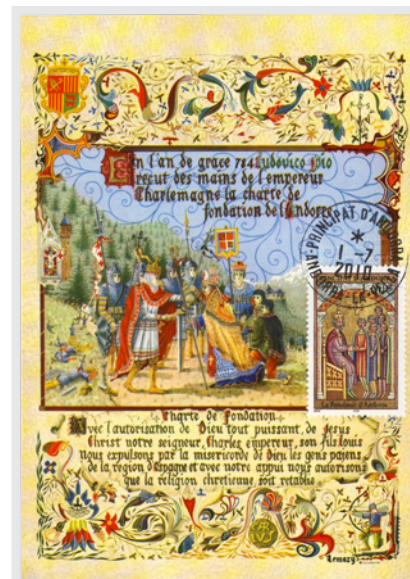 En l'an de grace 784 Ludovico pio
reçut des mains de l'empereur
Charlemagne la charte de
fondation de l'Andorre
PRINCIPAT D'ANDORRA
*
1 -7
2010
LA
Charte de Fondation
Avec l'autorisation de Dieu tout puissant, de Jesus
Christ notre seigneur, Charles empereur, son fils louis
nous expulsons par la misericorde de Dieu les gens païens
de la région d'Espagne et avec notre appui nous autorisons
que la religion chretienne soit retablie